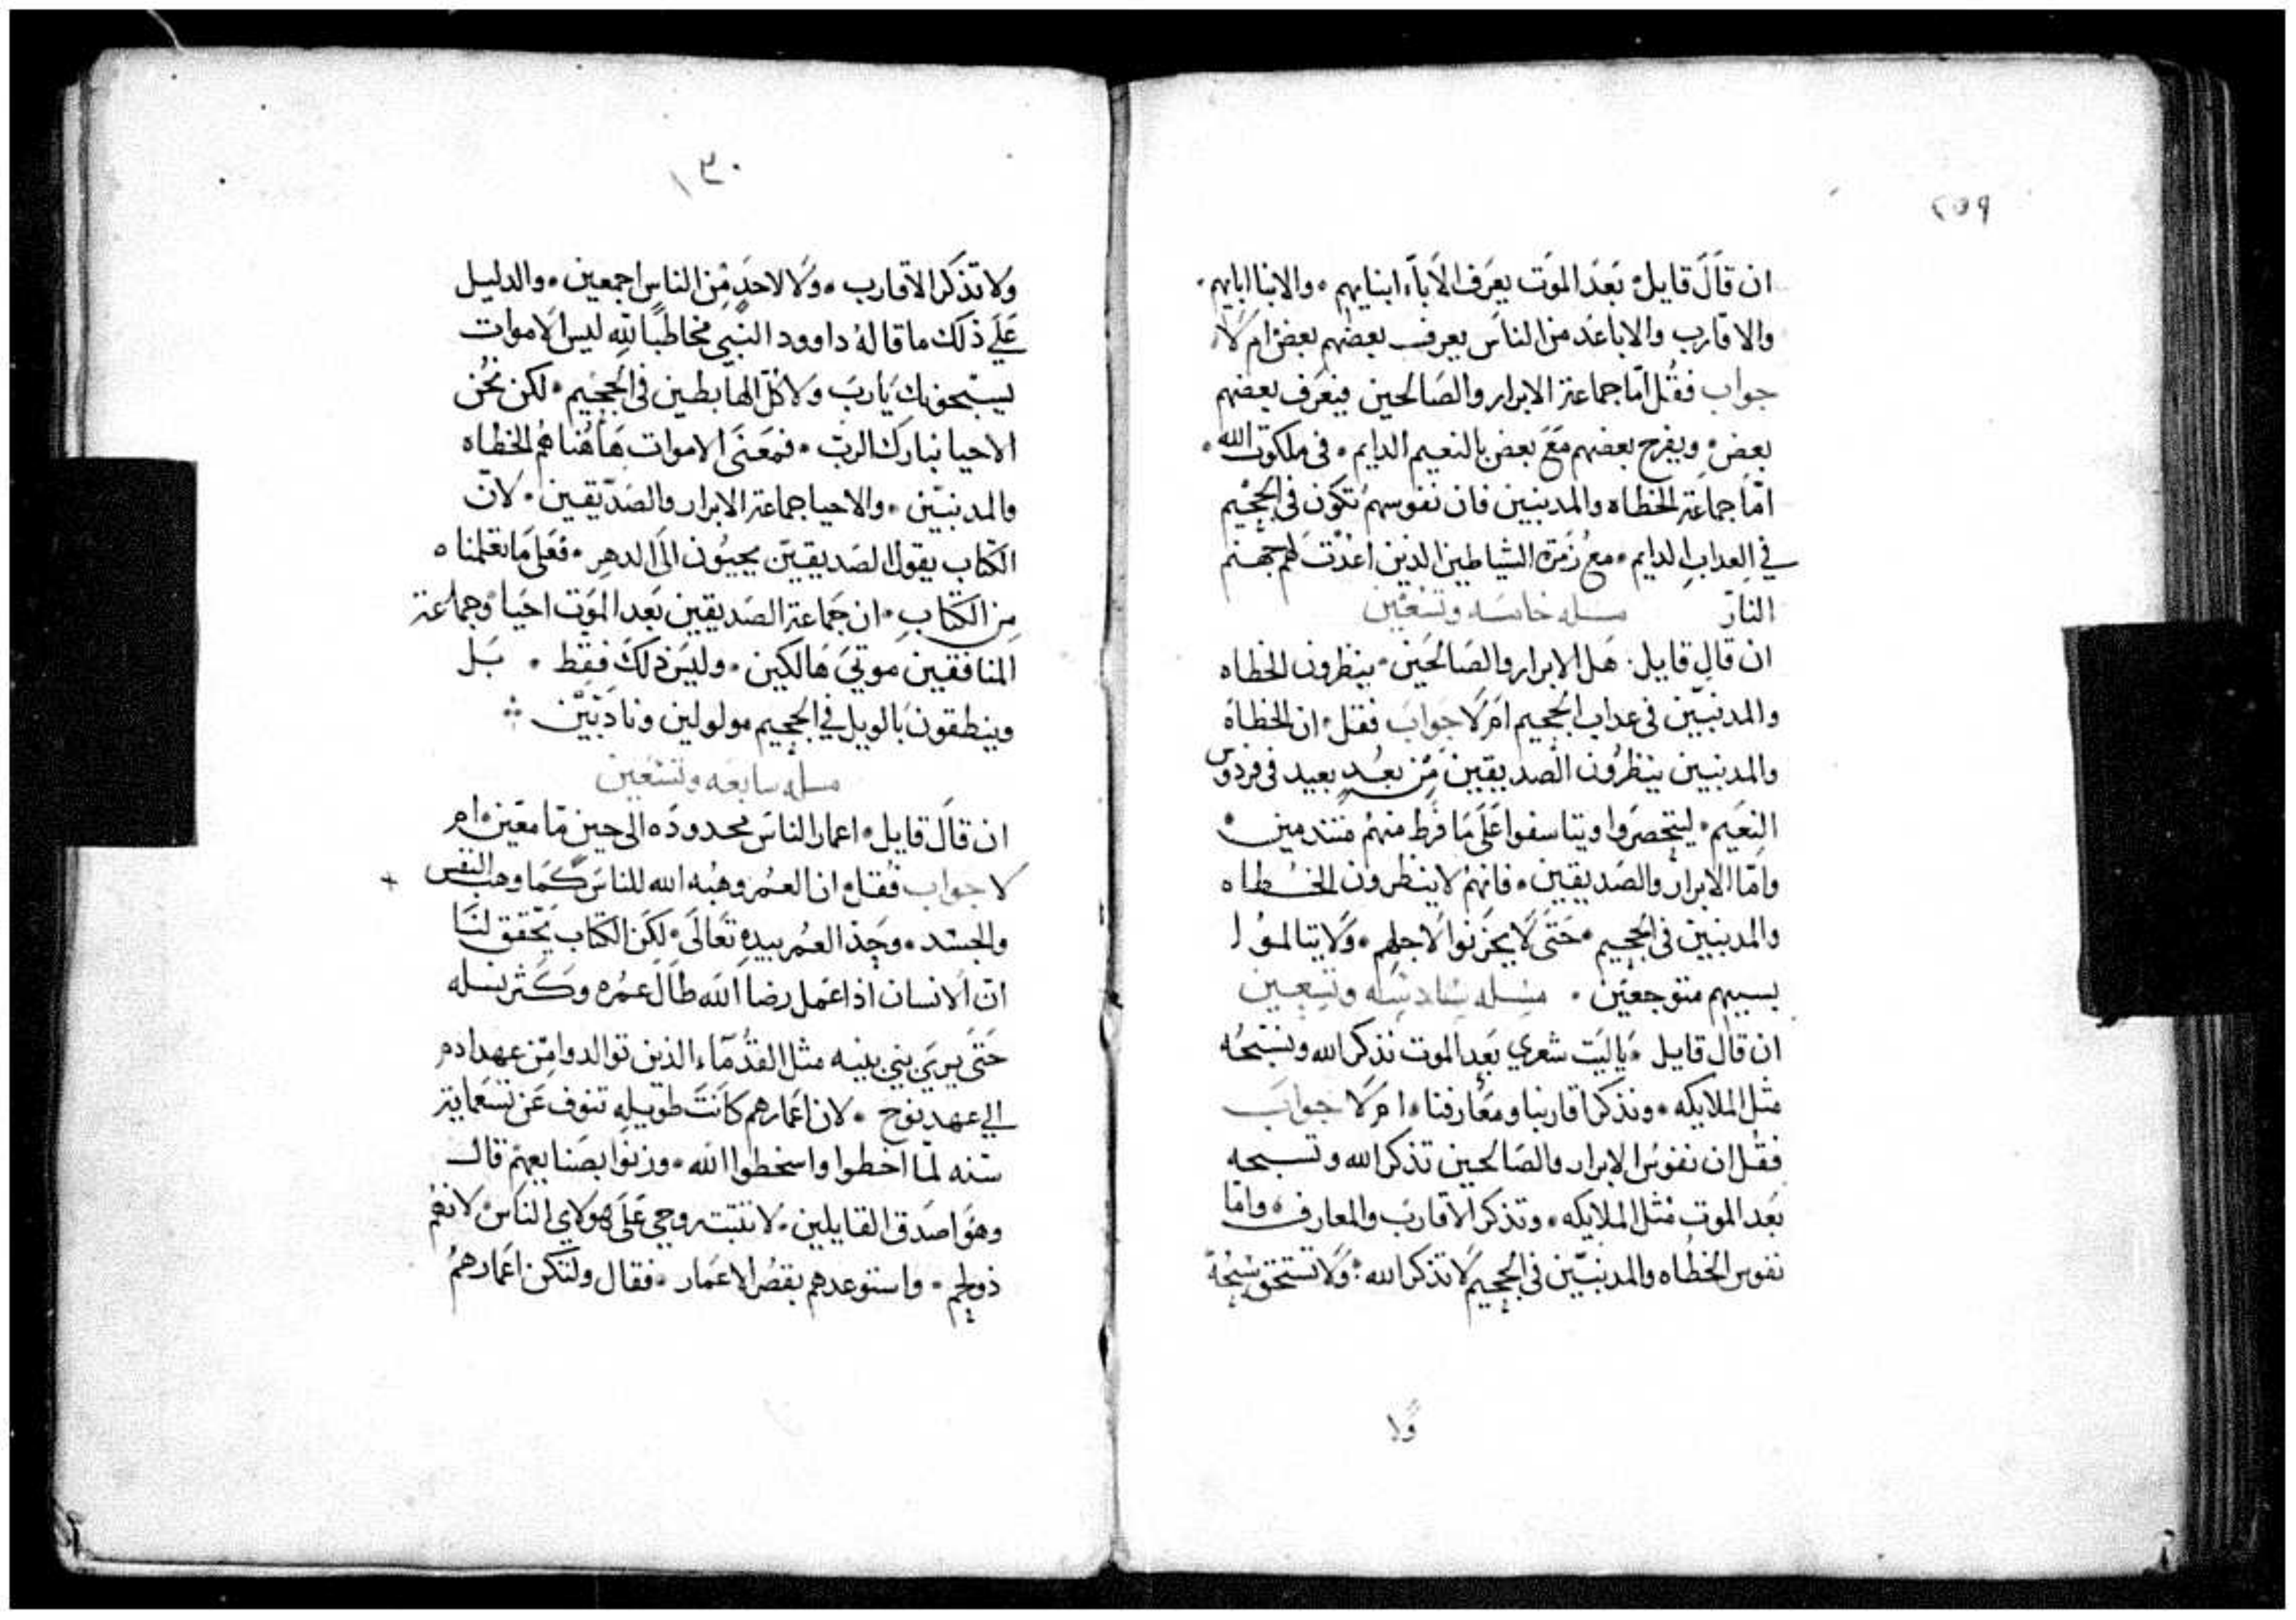 ٢٥٩
ان قَالَ قايل بَعَد الموَت يعرَف الاَباَء ابنايهم • والابنا اباَيهم •
والاقارب والاباعَد من الناسَ يعرف بعضهم بعض ام لاَ
جواب فقُل امّا جماعة الابرار والصَالحين فيعَرف بعضهم
بعض • ويفرح بعضهم مَعَ بعض بالنعيم الدايم • فى ملكوت الله •
امّا جماعَة الخطاه والمدنبين فان نفوسهم تكوَن فى الجحيم
في العداب الدايم • مع زمرَة الشياطين الذين اعَدْت لهم جهنم
النارّ مسله خامسَه وتسعَين
ان قال قايل • هَل الابرار والصَالحَين • ينظرون الخطاه
والمدنبيَن فى عداب الجحيم اَم لَا جوابَ فقل • ان الخطاَه
والمدنبين ينظرُون الصَديقين مَن بعُد بعيد فى فردوس
النعَيم • ليتحصَروا ويتاسفوا عَلَى مَا فَرط منهمُ متندمين •
وامّا الابرار والصَديقين • فانهمُ لا ينظرون الخطاه
والمدنبين فى الجحيم • حَتَى لاَ يحزَنوا لاَجلهم • وَلا يتالموُا
بسببهم متوجعيَن • مسَله سَادسَه وتسعين
ان قال قايل • يَاليَت شعري بَعد الموت نذكر الله ونسَبحُه
مثل الملايكه • ونذكر اقاربنا ومعَارفنا • ام لَا جوابَ
فقُل ان نفوسُ الابرار والصَالحين تذكر الله وتسبحه
بعَد الموت مثل الملايكه • وتذكر الاَقارب والمعارف • وامّا
نفوس الخطاه والمدنبيّن فى الجحيم لاَ تذكر الله : وَلا تستحق تسبحُهَ
وَلا
١٣٠
وَلا تذكر الاقارب • وَلا لاحَدٍ مْن الناس اجمعين • والدليل
عَلَي ذلك ما قالهُ داوود النبي مخاطبًا للّه ليس الاَموات
يسبْحونك يَارب وَلا كُلّ الهاَبطين فى الجحيم • لكن نحُن
الاحيا نبارك الربَ • فمعَنَى الاموات هَاهُنا هُم الخطاه
والمدنبيّن • والاحيا جماعة الابرار والصَدّيقين • لانّ
الكتاب يقول الصَديقيّن يحييُون الىَ الدهرِ • فعَلى مَا تعَلمناه
مِن الكتاب • ان جَماعة الصَديقين بَعد الموَت احَيا • وجماعة
المنافقين مَوتيَ هَالكين • وليَس ذلكَ فقط • بَل
وينطقونَ بالويل في الجحيم مولولين ونادَبيّن ⁘
مسله سابعَه وتسَعين
ان قالَ قايل • اعمار الناسَ محدودَه الى حين مّا معَين ام
لا جواب فُقل • ان العُمر وهبُه الله للناسَ كمَا وهبَ النفس +
والجسَد • وحَدّ العُمر بيده تعَالَى • لكَن الكتاب يحَقق لنَا
انّ الانسان اذا عَمل رضا الله طالَ عمُره وكَثر نسله
حَتىَ يرىَ بني بنيه مثل القدُمآء الذين توالدوا مِن عهد ادم
الى عهد نوح • لان اعَمارهم كاَنَت طويله تنوف عَن تسعَماية
سَنه لمّا اخطوا واسخطوا الله • وزنوَا بصَنايعهمُ قال
وهوَ اصَدق القايلين • لا تثبت روحي عَلَى هولاي الناسَ لانهُم
ذو لحِم • واستوعدهم بقصُر الاعمَار • فقال ولتكن اعَمارهمُ